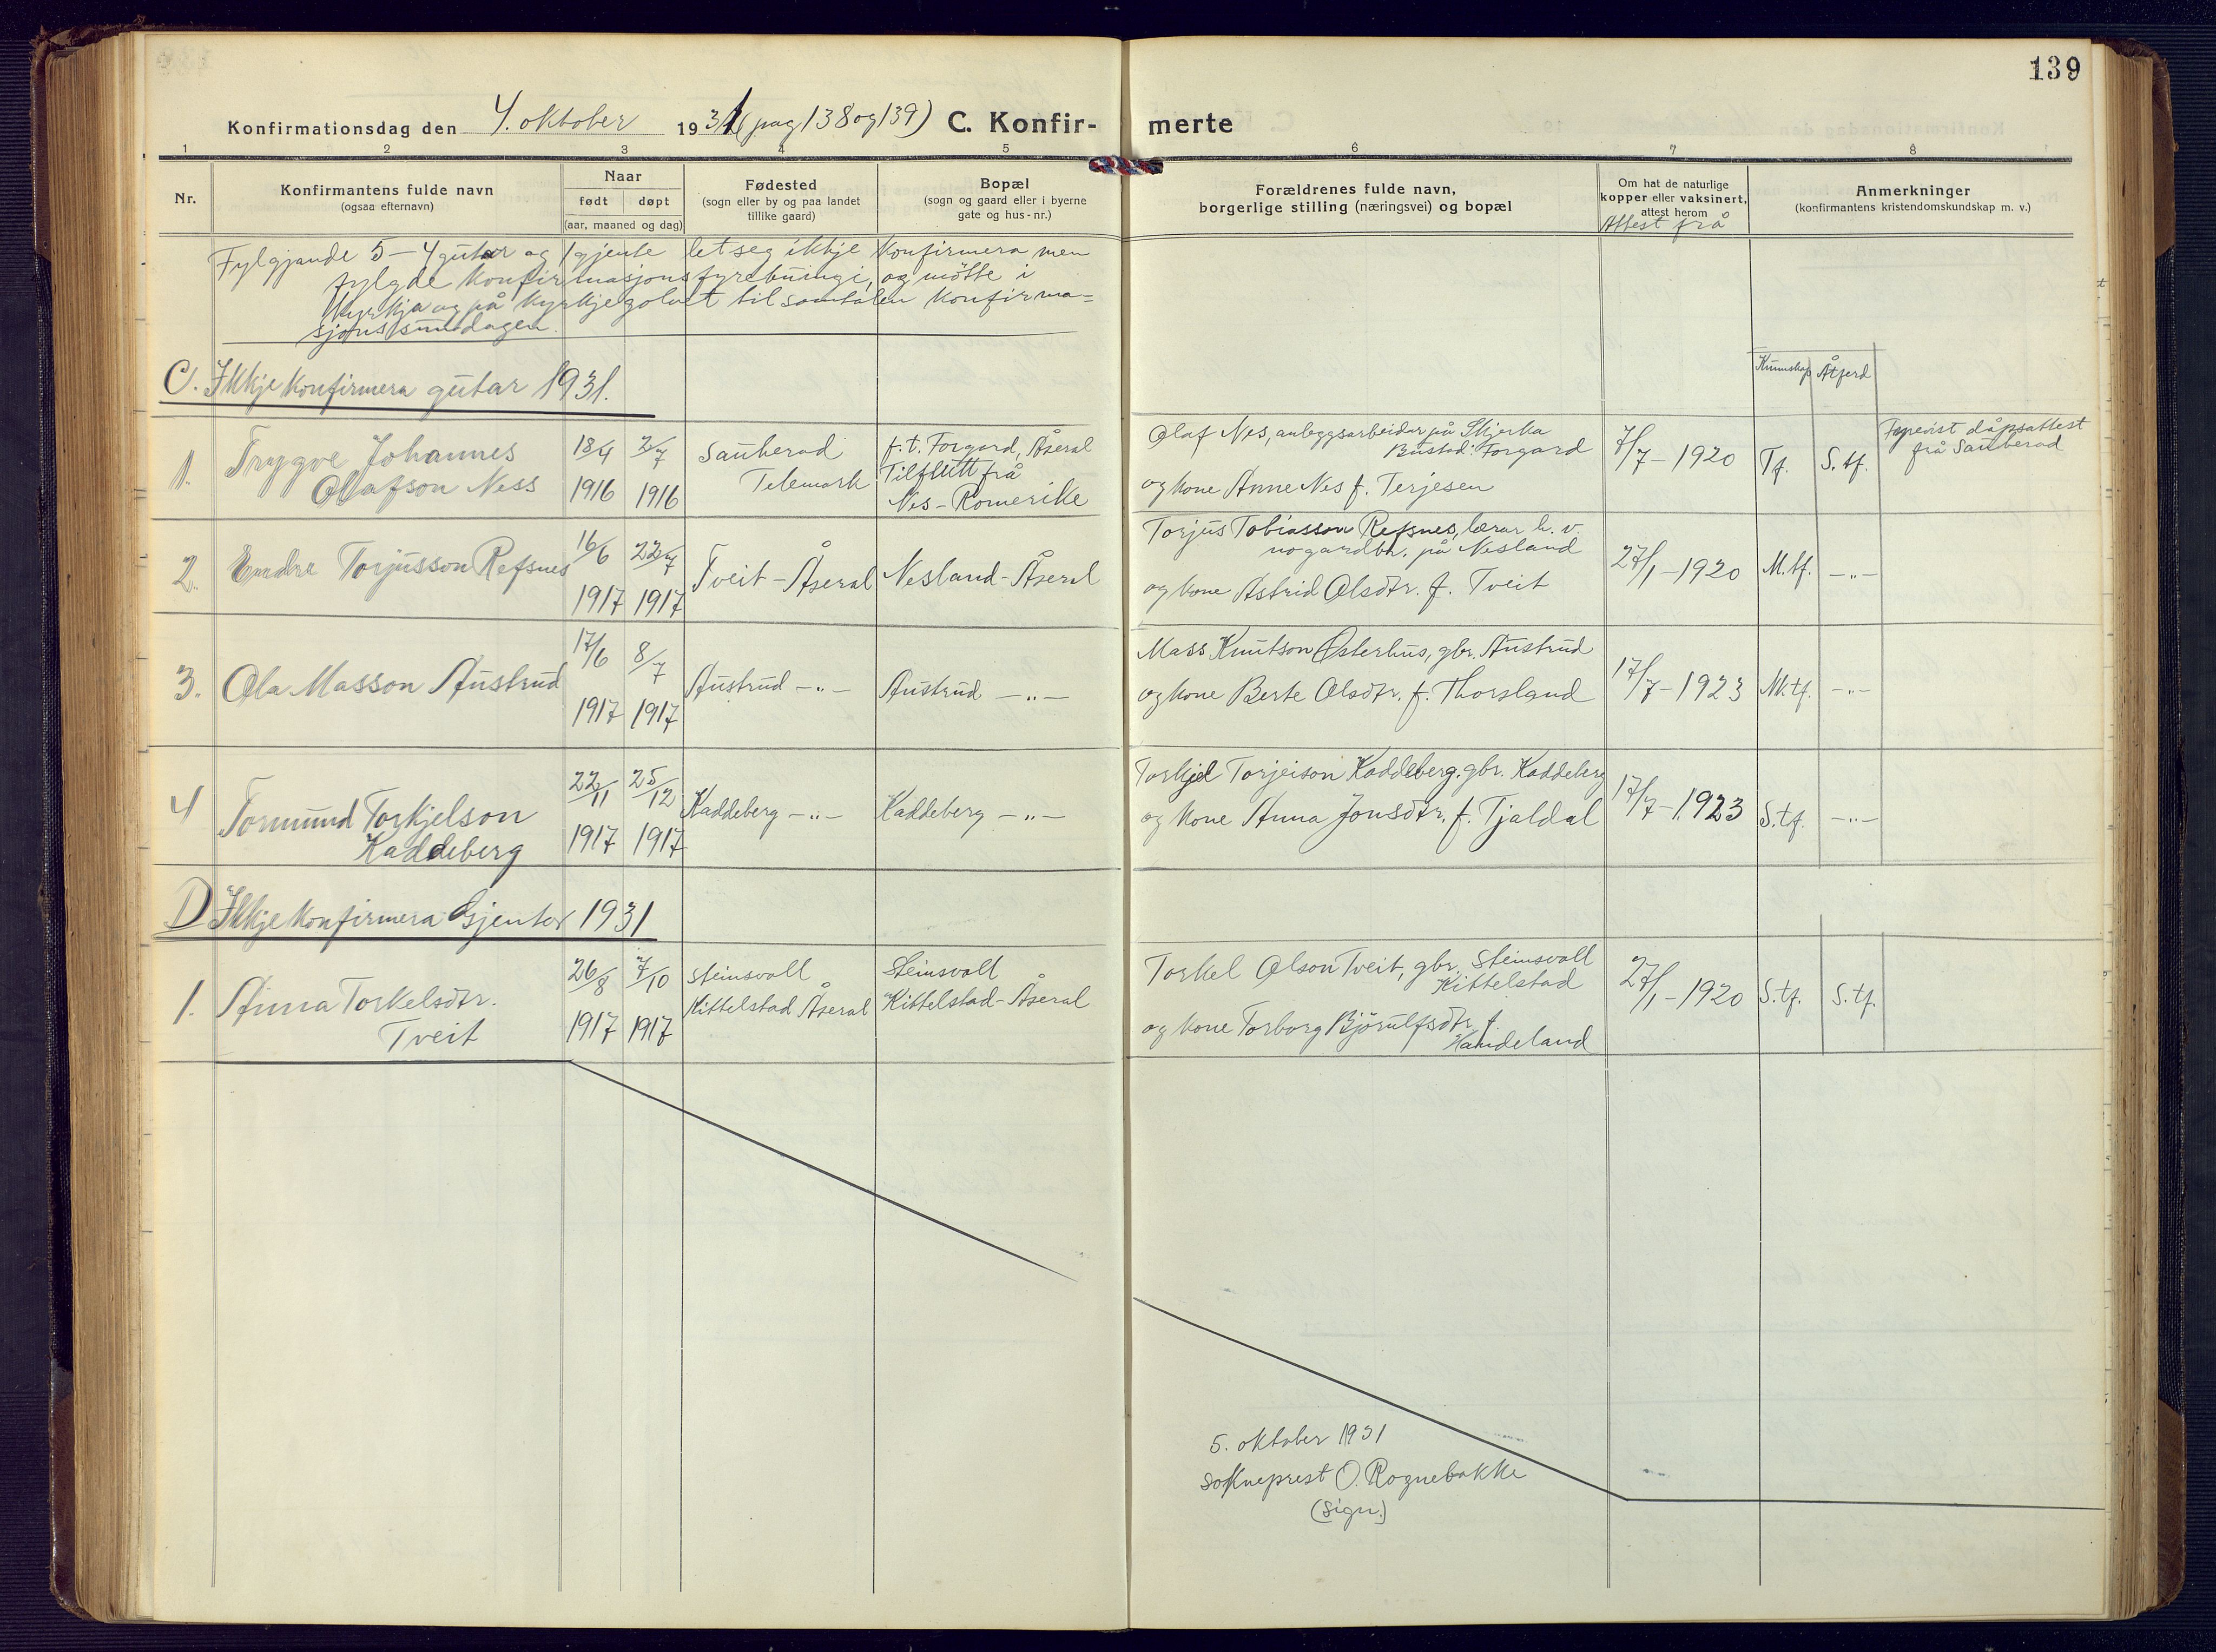 139
Konfirmationsdag den 4. oktober 1931 (pag 138 og 139) C. Konfir- merte
1 2 3 4 5 6 7 8
Nr.
Konfirmantens fulde navn
(ogsaa efternavn)
Naar
født døpt
(aar, maaned og dag)
Fødested
(sogn eller by og paa landet
tillike gaard)
Bopæl
(sogn og gaard eller i byerne
gate og hus-nr.)
Forældrenes fulde navn,
borgerlige stilling (næringsvei) og bopæl
Om hat de naturlige
kopper eller vaksinert,
attest herom
Attest frå
Anmerkninger
(konfirmantens kristendomskundskap m. v.)
Fylgjande 5 – 4 gutar og 1 gjente let seg ikkje konfirmera men
fylgde konfirmasjonsfyrebuingi, og møtte i
kyrkja og på kyrkjegolvet til samtalen konfirma=
sjonssundagen.
C. Ikkje konfirmera gutar 1931.
Kunnskap Åtferd
1. Trygve Johannes
Olafson Ness
18/4 1916
2/7 1916
Sauherad
Telemark
f. t. Forgard, Åseral
Tilflutt frå
Nes-Romerike
Olaf Nes, anleggsarbeidar på Skjerka
Bustad: Forgard
og kone Anne Nes f. Terjesen
7/7 – 1920
Tf. S. tf.
Fyrevist dåpsattest
frå Sauherad
2. Endre Torjusson Refsnes
16/6 1917
22/7 1917
Tveit – Åseral
Nesland - Åseral
Torjus Tobiasson Refsnes, lærar h. v.
og gardbr. på Nesland
og kone Astrid Olsdtr. f. Tveit
27/1 – 1920
M.tf. –"–
3. Ola Masson Austrud
17/6 1917
8/7 1917
Austrud –"–
Austrud –"–
Mass Knutson Østerhus, gbr. Austrud
og kone Berte Olsdtr. f. Thorsland
17/7 – 1923
M.tf. –"–
4 Tormund Torkjelson
Kaddeberg
22/11 1917
25/12 1917
Kaddeberg –"–
Kaddeberg –"–
Torkjel Torjeison Kaddeberg. gbr. Kaddeberg
og kone Anna Jonsdtr. f. Tjaldal
17/7 – 1923
S.tf. –"–
D Ikkje konfirmera Gjentor 1931
1. Anna Torkelsdtr.
Tveit
26/8 1917
7/10 1917
Steinsvoll
Kittelstad Åseral
Steinsvoll
Kittelstad - Åseral
Torkel Olson Tveit, gbr. Steinsvoll
Kittelstad
og kone Torborg Bjørulfsdtr. f.
Handeland
27/1 – 1920
S.tf. S.tf.
5. oktober 1931
sokneprest O. Rognebakke
(sign.)